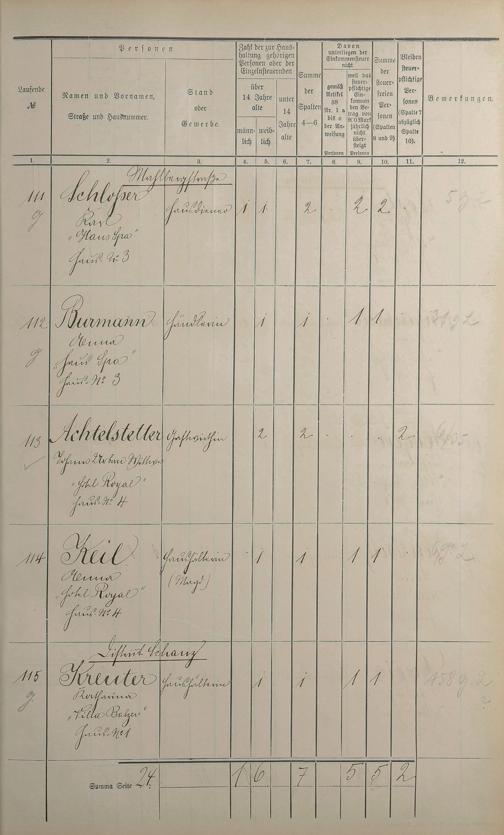 Personen
Zahl der zur Haus-
haltung gehörigen
Personen oder der
Einzelnsteuernden
Davon
unterliegen der
Einkommensteuer
nicht
Laufende
№
Namen und Vornamen,
Straße und Hausnummer.
Stand
oder
Gewerbe.
über
14 Jahre
alte
männ-
lich
weib-
lich
unter
14
Jahre
alte
Summe
der
Spalten
4—6
gemäß
Artikel
Nr. 1 a
bis
der An-
weisung
Personen
weil das
steuer-
pflichtige
Ein-
kommen
den Be-
trag von
900 Mark
jährlich
nicht
über-
steigt
Personen
Summe
der
steuer-
freien
Per-
sonen
(Spalten
8 und 9).
Bleiben
steuer-
pflichtige
Per-
sonen
(Spalte 7
abzüglich
Spalte
10).
Bemerkungen.
1. 2. 3. 4. 5. 6. 7. 8. 9. 10. 11. 12.
Mahlbergstraße
111 Schloßer Hausdiener 1 1 2 2 2
g Karl
"Haus Spa"
Haus № 3
112 Burmann Händlerin 1 1 1 1
g Anna
"Haus Spa"
Haus № 3
113 Achtelstetter Gastwirthin 2 2 2
Johann Wittwe
"Hôtel Royal"
Haus № 4
114 Keil Haushälterin 1 1 1 1
Anna (Magd)
"Hôtel Royal"
Haus № 4
Distrikt Schanz
115 Kreuter Haushälterin 1 1 1 1
g Katharina
"Villa Balzer"
Haus № 1
Summa Seite 24. 1 6 7 5 5 2